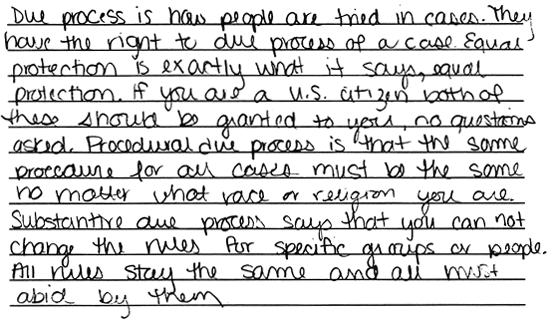 Due process is how people are tried in cases. They
have the right to due process of a case. Equal
protection is exactly what it says, equal
protection. If you are a U.S. citizen both of
these should be granted to you, no questions
asked. Procedural due process is that the same
procedure for all cases must be the same
no matter what race or religion you are.
Substantive due process says that you can not
change the rules for specific groups or people.
All rules stay the same and all must
abid by them